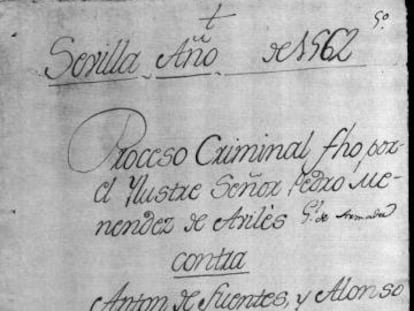 Sevilla Año de 1562
Proceso Criminal fho, por-
el Ylustre Señor Pedro Me-
nendez de Avilès G.l de Armada
contra
Anton de Fuentes, y Alonso